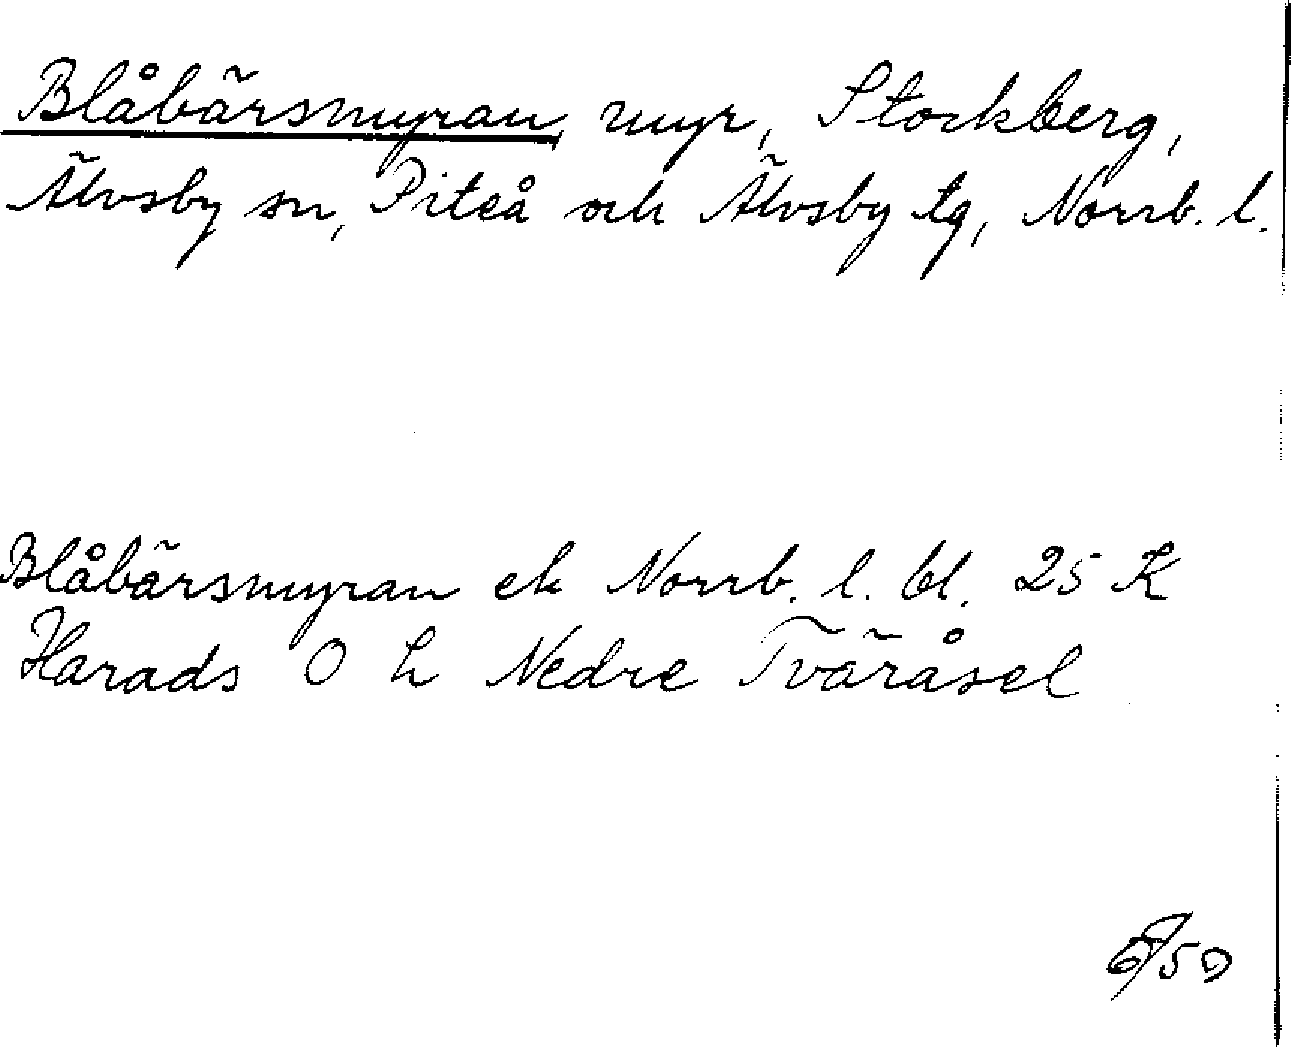 Blåbärsmyran, myr, Stockberg,
Älvsby sn, Piteå och Älvsby tg, Norrb. l.
Blåbärsmyran ek Norrb. l. bl. 25 K
Harads O h Nedre Tväråsel